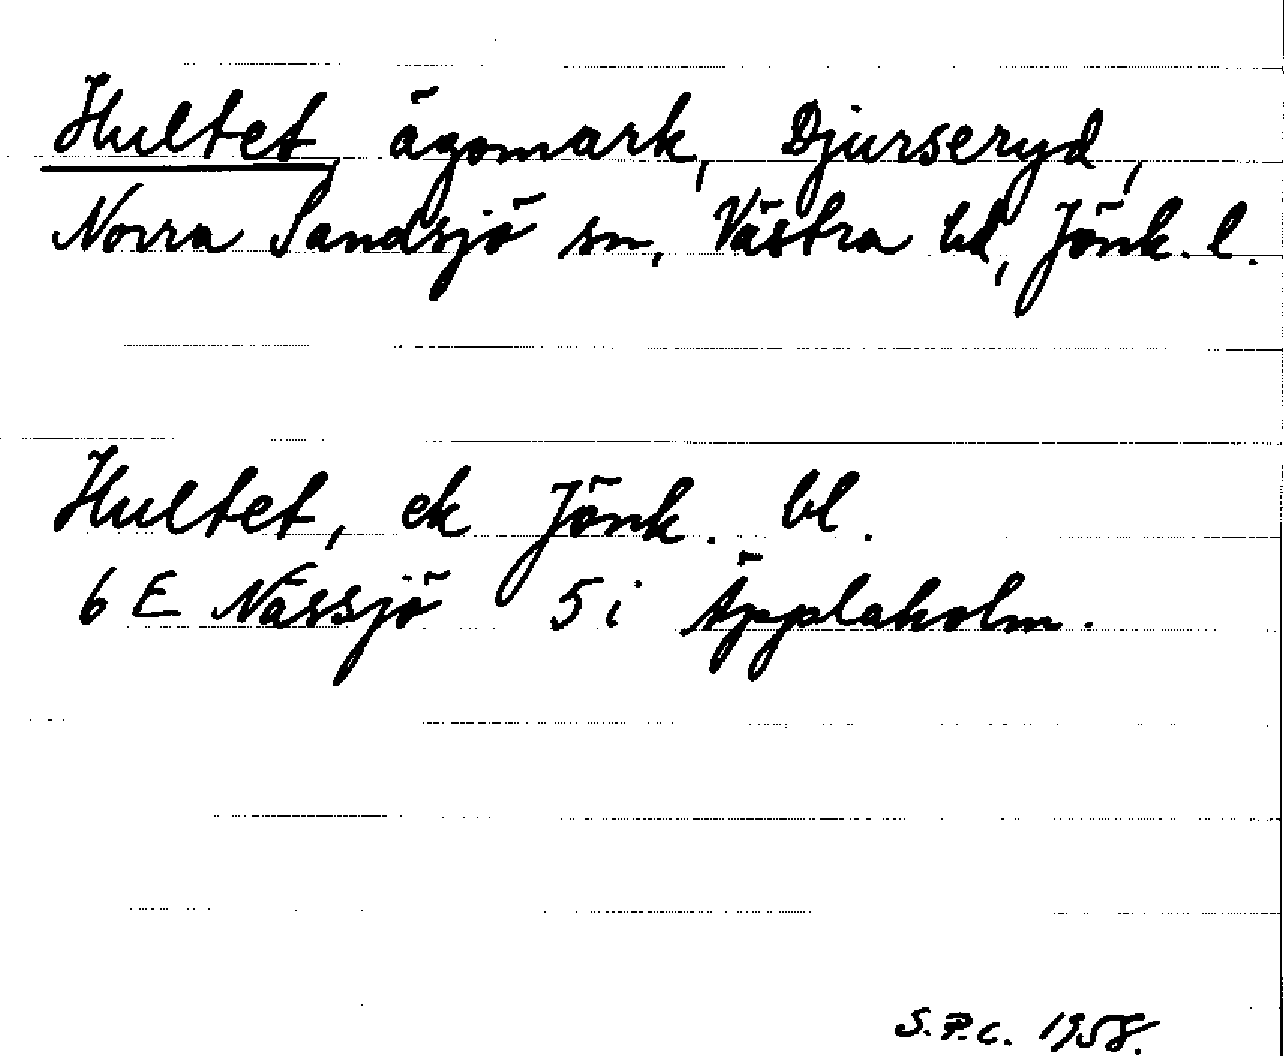 Hultet, ägomark, Djurseryd,
Norra Sandsjö sn, Västra hd, Jönk. l.
Hultet, ek Jönk. bl.
6 E Nässjö 5 i Äpplaholm.
S.P.C. 1958.